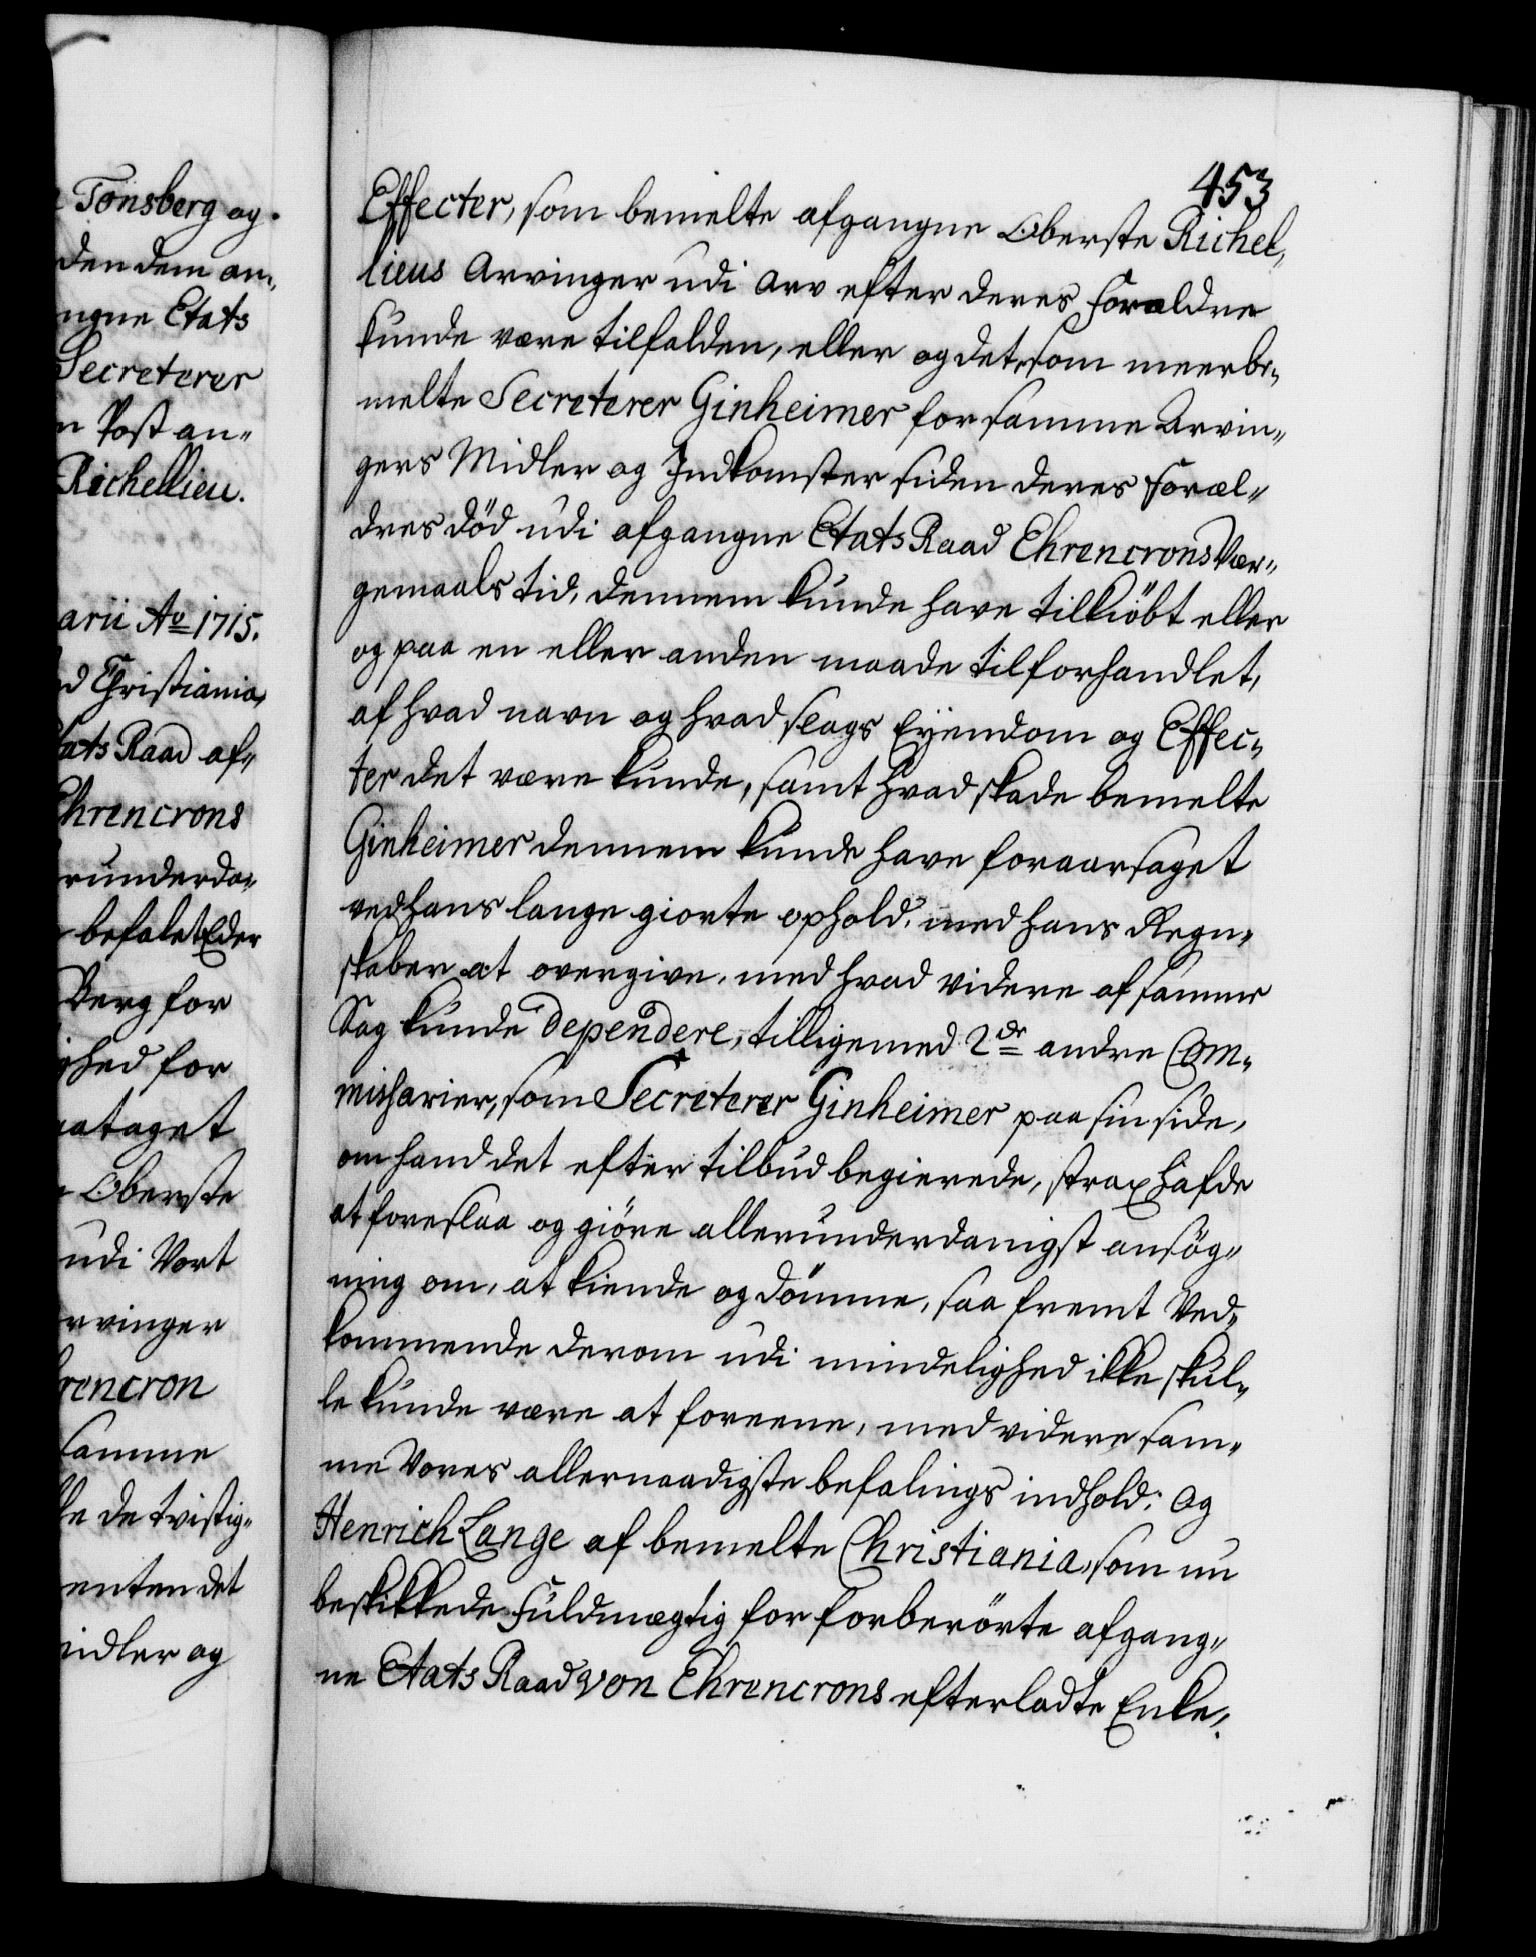 Tønsberg og
den dem an„
ngne Etats
Secreterer
Post an„
Richellieu.
arii Ao 1715.
d Christiania,
ats Raad af„
Ehrencrons
runderda„
befalet Eder
Berg for
ghed for
ataget
Oberste
udi Vort
rvinger
rencron
samme
de tvistig„
enten det
idler og
453
Effecter, som bemelte afgangne Oberste Richel„
lieus Arvinger udi Arv efter deres Forældre
kunde være tilfalden, eller og det, som meerbe„
melte Secreterer Ginheimer for samme Arvin„
gers Midler og Indkomster siden deres Foræl„
dres død udi afgangne Etats Raad Ehrencrons Vær„
gemaals tid, dennem kunde have tilkiöbt eller
og paa en eller anden maade tilforhandlet,
af hvad navn og hvad slags Eyendom og Effec„
ter det være kunde, samt hvad skade bemelte
Ginheimer dennem kunde have foraarsaget
ved hans lange giorte ophold, med hans Regn„
skaber at overgive, med hvad videre af samme
Sag kunde dependere, tilligemed 2de andre Com„
missarier, som Secreterer Ginheimer paa sin side,
om hand det efter tilbud begierede, strax hafde
at foreslaa og giöre allerunderdanigst ansög„
ning om, at kiende og dömme, saa fremt Ved„
kommende derom udi mindelighed ikke skul„
le kunde være at foreene, med videre sam„
me Vores allernaadigste befalings indhold; Og
Henrich Lange af bemelte Christiania, som nu
beskikkede Fuldmægtig for forberörte afgang„
ne Etats Raad von Ehrencrons efterladte Enke,